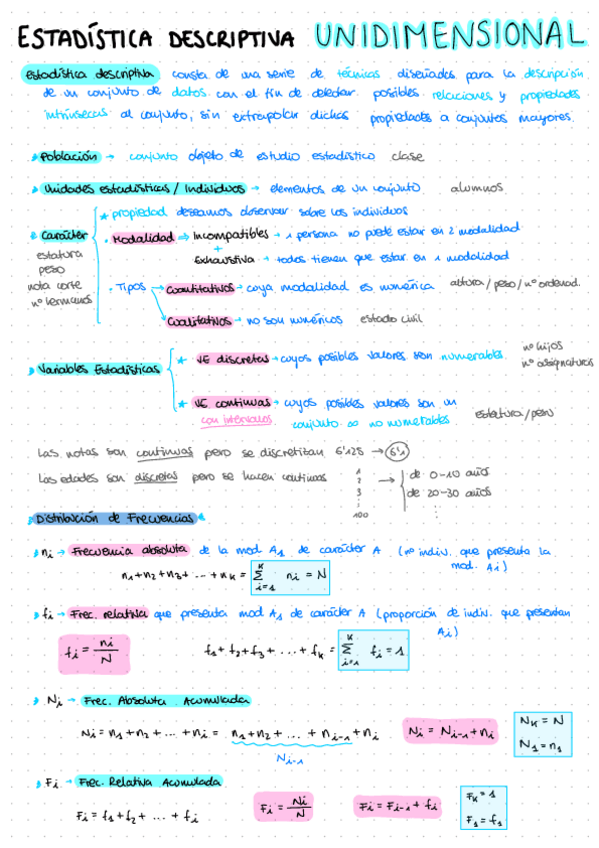 ESTADÍSTICA DESCRIPTIVA UNIDIMENSIONAL
Estadística descriptiva consta de una serie de técnicas diseñadas para la descripción
de un conjunto de datos con el fin de detectar posibles relaciones y propiedades
intrínsecas al conjunto, sin extrapolar dichas propiedades a conjuntos mayores.
Población → conjunto objeto de estudio estadístico clase
Unidades estadísticas / Individuos → elementos de un conjunto alumnos
Carácter
estatura
peso
nota corte
nº hermanos
* propiedad deseamos observar sobre los individuos
· Modalidad ⇒ Incompatibles → 1 persona no puede estar en 2 modalidad
+
Exhaustiva → todos tienen que estar en 1 modalidad
· Tipos → Cuantitativos → cuya modalidad es numérica altura / peso / nº ordenad.
Cualitativos → no son numéricos estado civil
Variables Estadísticas
* VE discretas → cuyos posibles valores son numerables nº hijos
nº asignaturas
* VE continuas → cuyos posibles valores son un
con intervalos conjunto ∞ no numerables estatura / peso
Las notas son continuas pero se discretizan 6'125 → 6'1
Las edades son discretas pero se hacen continuas 1 2 3 ⋮ 100 → de 0-10 años
de 20-30 años
⋮
Distribución de Frecuencias
nᵢ → Frecuencia absoluta de la mod A₁ de carácter A (nº indiv. que presenta la
mod. Aᵢ)
n₁+n₂+n₃+ ... +n_K = Σ_{i=1}^{K} nᵢ = N
fᵢ → Frec. relativa que presenta mod A₁ de carácter A (proporción de indiv. que presentan
Aᵢ)
fᵢ = nᵢ/N f₁+f₂+f₃+ ... +f_K = Σ_{i=1}^{K} fᵢ = 1
Nᵢ → Frec. Absoluta Acumulada
Nᵢ = n₁+n₂+ ... +nᵢ = n₁+n₂+ ... +nᵢ₋₁+nᵢ Nᵢ = Nᵢ₋₁+nᵢ N_K = N
N₁ = n₁
Nᵢ₋₁
Fᵢ → Frec. Relativa Acumulada
Fᵢ = f₁+f₂+ ... +fᵢ Fᵢ = Nᵢ/N Fᵢ = Fᵢ₋₁ + fᵢ F_K = 1
F₁ = f₁